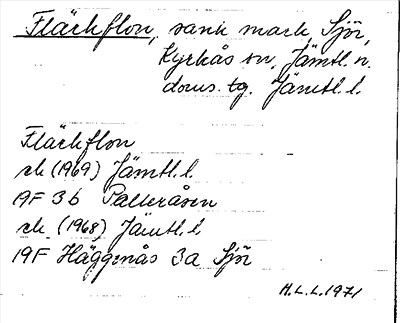 Fläckflon, sank mark, Sjör,
Kyrkås sn, Jämtl. n.
doms. tg. Jämtl. l.
Fläckflon
ek (1969) Jämtl. l.
19F 3b Pallråsen
ek (1968) Jämtl. l.
19F Häggenås 3a Sjör
H.L.L. 1971